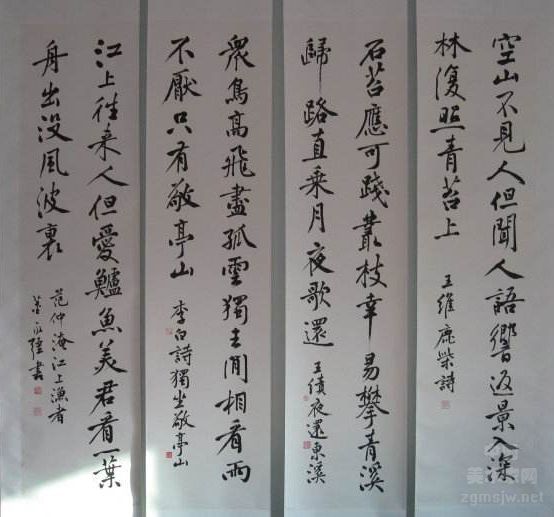 空山不見人但聞人語響返景入深
林復照青苔上
王維鹿柴詩
石苔應可踐叢枝幸易攀青溪
歸路直乘月夜歌還
王績夜還東溪
衆鳥高飛盡孤雲獨去閒相看兩
不厭只有敬亭山
李白詩獨坐敬亭山
江上往来人但愛鱸魚美君看一葉
舟出没風波裏
范仲淹江上漁者
zgmsjw.net